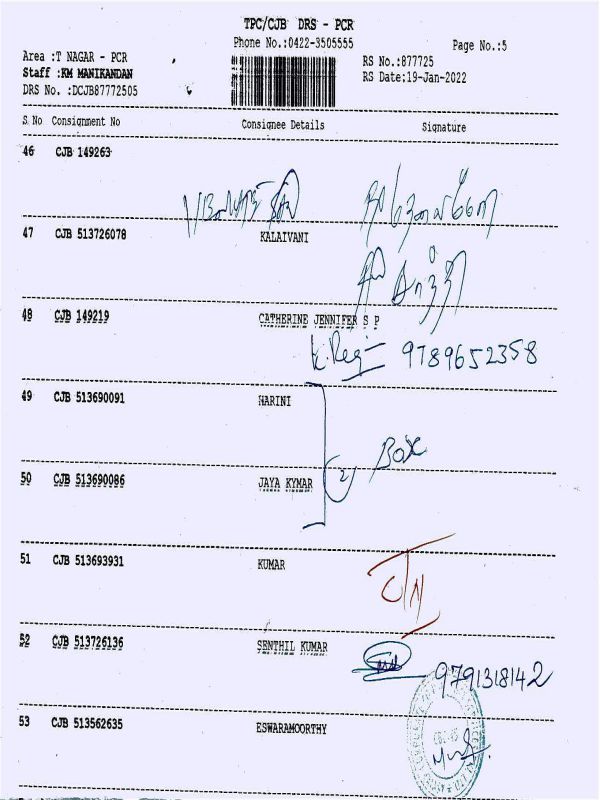 TPC/CJB DRS - PCR
Phone No.:0422-3505555
Page No.:5
Area :T NAGAR - PCR
RS No.:877725
Staff :KM MANIKANDAN
RS Date:19-Jan-2022
DRS No. :DCJB87772505
S No Consignment No Consignee Details Signature
46 CJB 149263
47 CJB 513726078 KALAIVANI
48 CJB 149219 CATHERINE JENNIFER S P
9789652358
49 CJB 513690091 HARINI
Box
2
50 CJB 513690086 JAYA KYMAR
51 CJB 513693931 KUMAR
52 CJB 513726136 SENTHIL KUMAR
9791318142
53 CJB 513562635 ESWARAMOORTHY